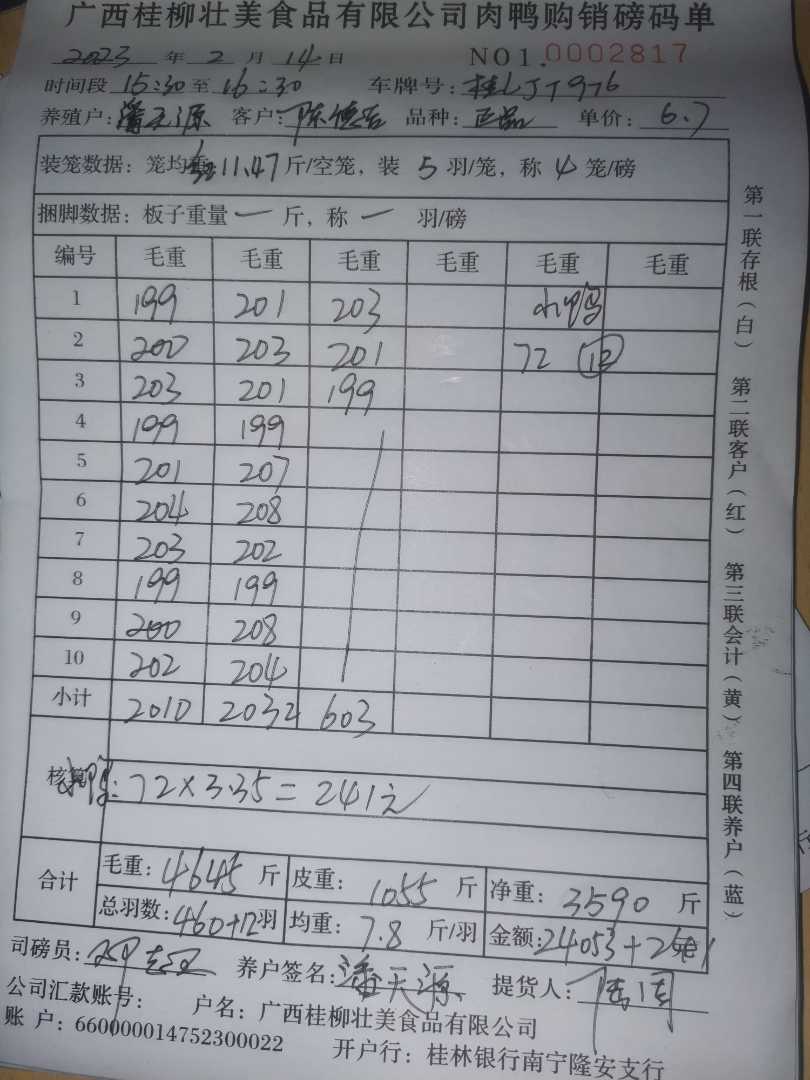 广西桂柳壮美食品有限公司肉鸭购销磅码单
2023 年 2 月 14 日 NO1.0002817
时间段 15:30 至 16:30 车牌号: 桂LJT976
养殖户: 潘天源 客户: 陈德 品种: 正品 单价: 6.7
装笼数据: 笼均重 11.47 斤/空笼, 装 5 羽/笼, 称 4 笼/磅
捆脚数据: 板子重量 一 斤, 称 一 羽/磅
编号 毛重 毛重 毛重 毛重 毛重 毛重
1 199 201 203 水鸭
2 200 203 201 72 12
3 203 201 199
4 199 199
5 201 207
6 204 208
7 203 202
8 199 199
9 200 208
10 202 204
小计 2010 2032 603
核算 水鸭: 72×3.35=241元
合计 毛重: 4645 斤 皮重: 1055 斤 净重: 3590 斤
总羽数: 460+12 羽 均重: 7.8 斤/羽 金额: 24053+241
司磅员: 养户签名: 潘天源 提货人:
公司汇款账号: 户名: 广西桂柳壮美食品有限公司
账 户: 660000014752300022 开户行: 桂林银行南宁隆安支行
第一联存根(白) 第二联客户(红) 第三联会计(黄) 第四联养户(蓝)